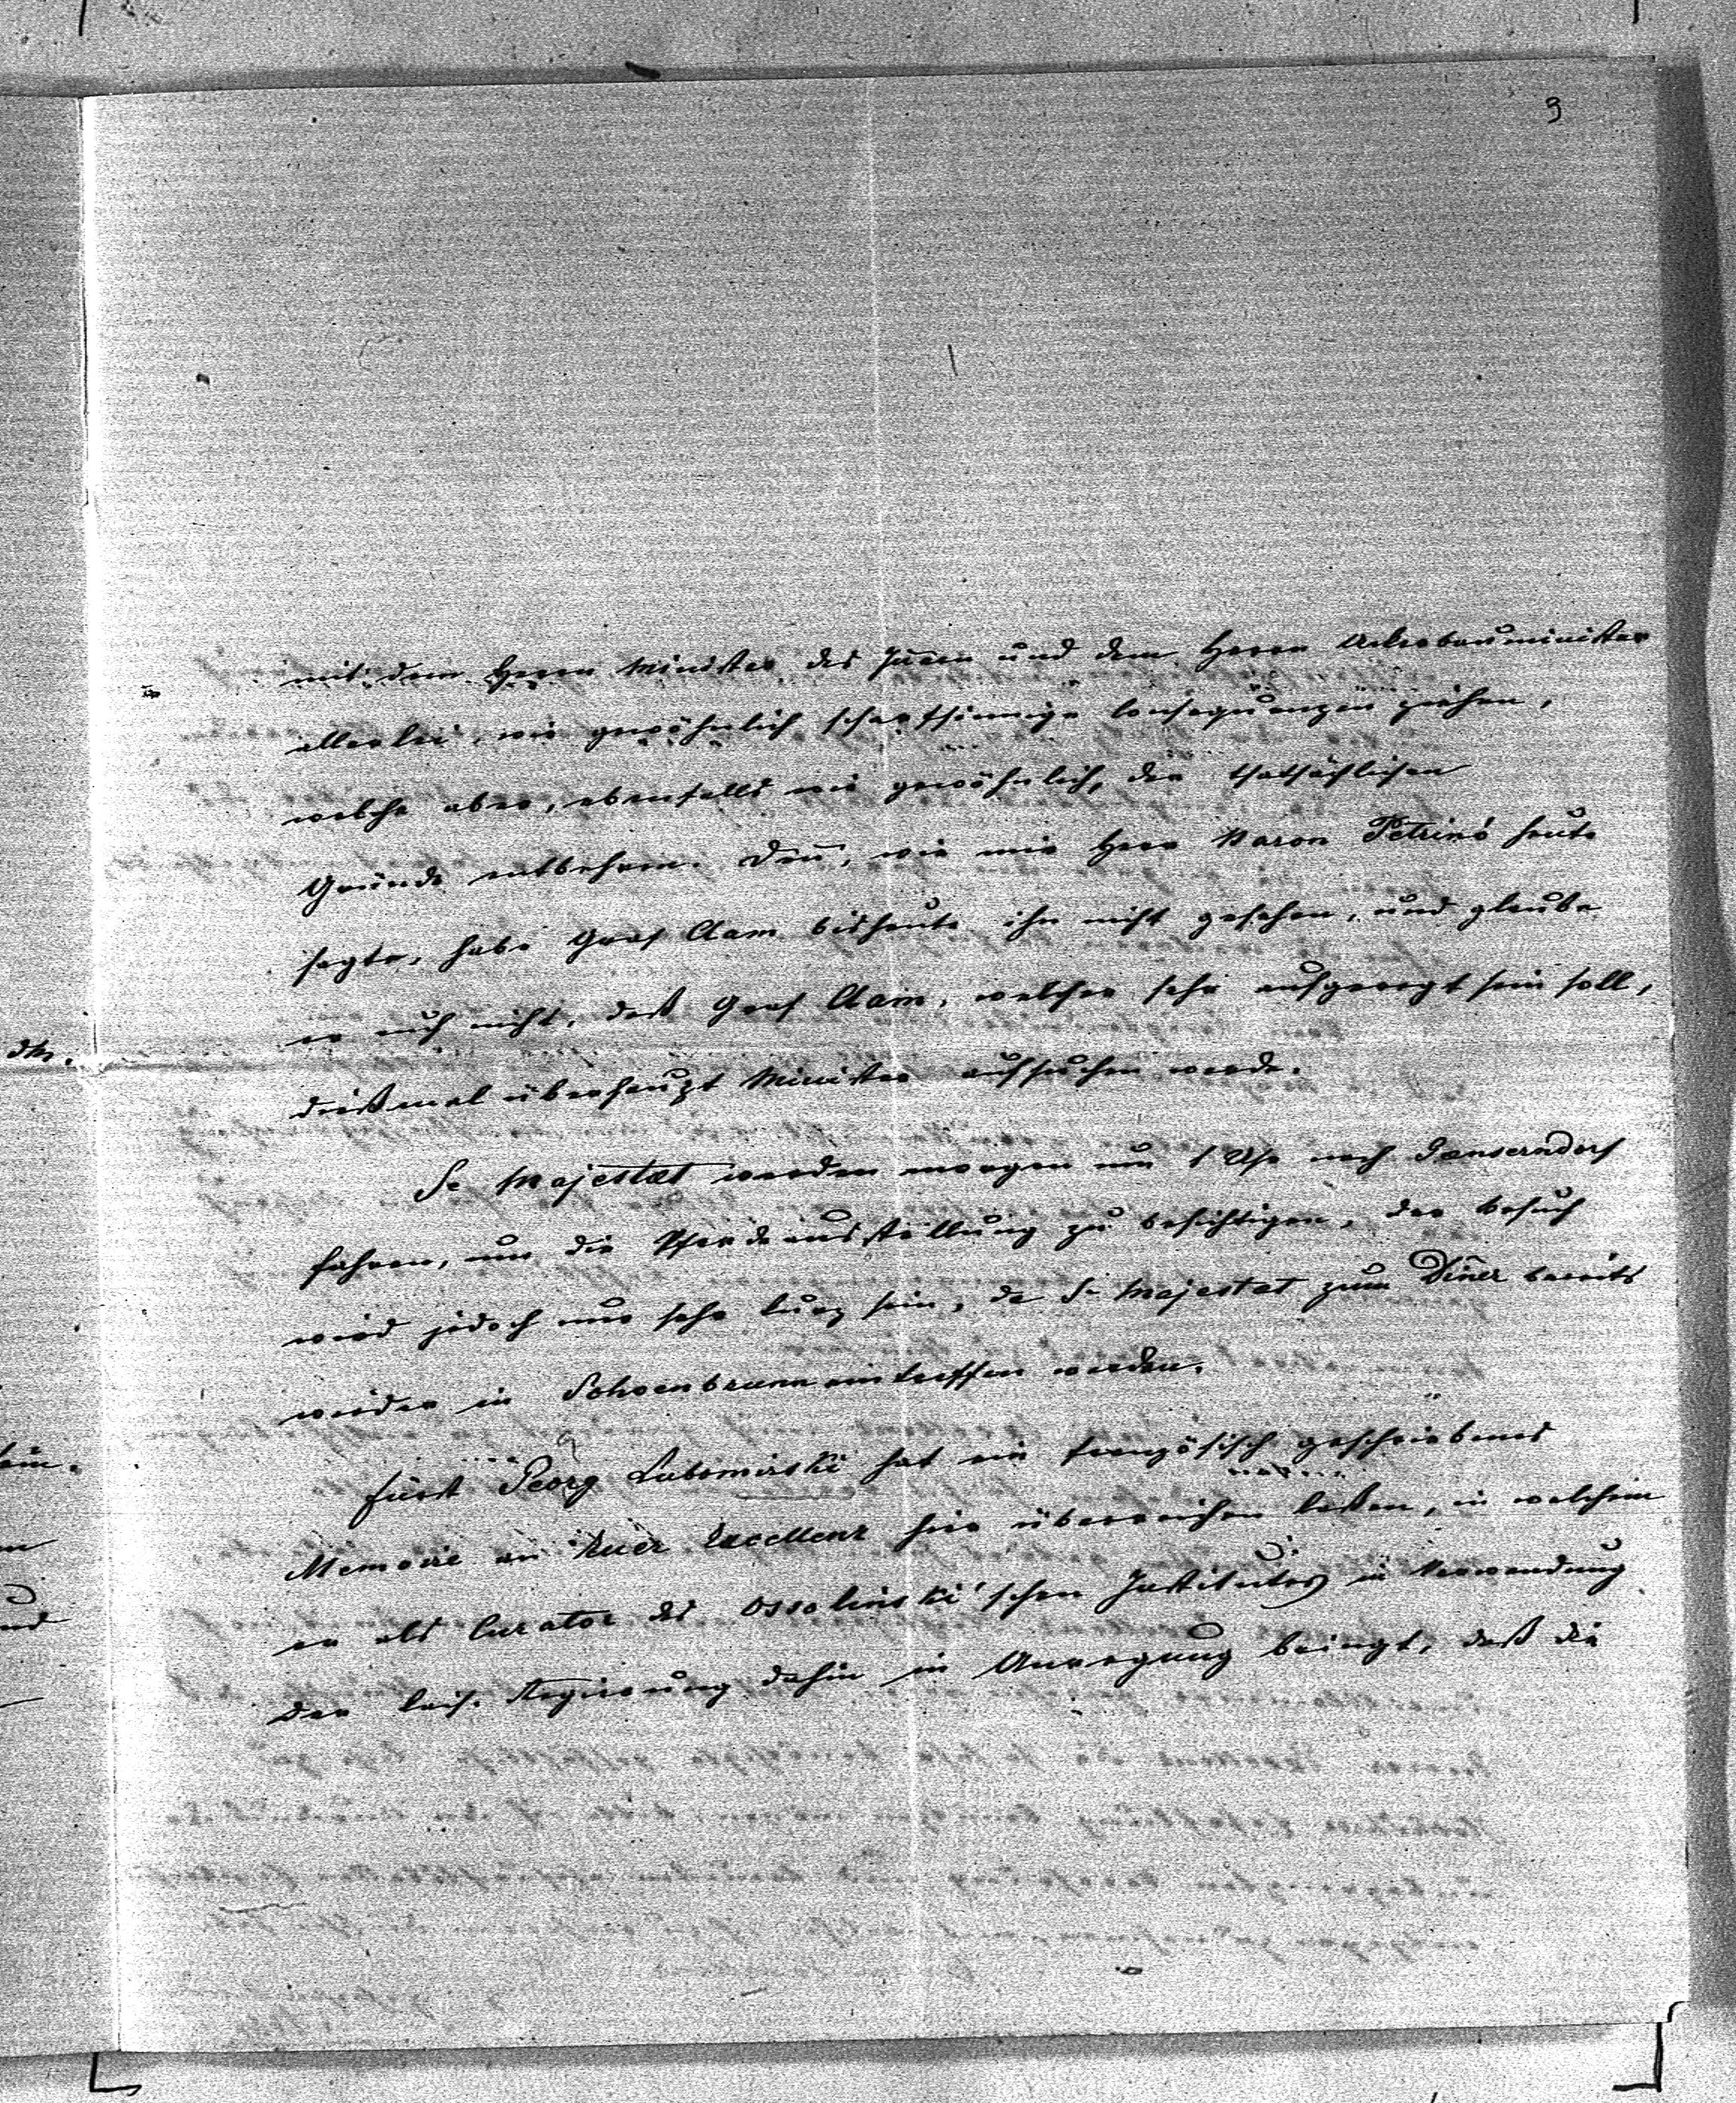 3
mit dem Herrn Minister des Jnnern und dem Herrn Ackerbauminister
allerlei, wie gewöhnlich scharfsinnige Consequenzen ziehen,
welche aber, ebenfalls wie gewöhnlich, der thatsächlichen
Gründe entbehren. Deñ, wie mir Herr Baron Petrinó heute
sagte, habe Graf Clam bisheute ihn nicht gesehen, und glaube
er auch nicht, daß Graf Clam, welcher sehr aufgeregt sein soll,
dießmal überhaupt Minister aufsuchen werde.
Se Majestät werden morgen um 1 Uhr nach Gänserndorf
fahren, um die Pferdeausstellung zu besichtigen, der Besuch
wird jedoch nur sehr kurz sein, da Se Majestät zum Diner bereits
wieder in Schoenbrunn eintreffen werden.
Fürst Georg Lubomirski hat ein französisch geschriebenes
Memoire an Euer Excellenz hier überreichen laßen, in welchem
er als Curator des Ossolinski'schen Institutes die Verwendung
der kais. Regierung dahin in Anregung bringt, daß die